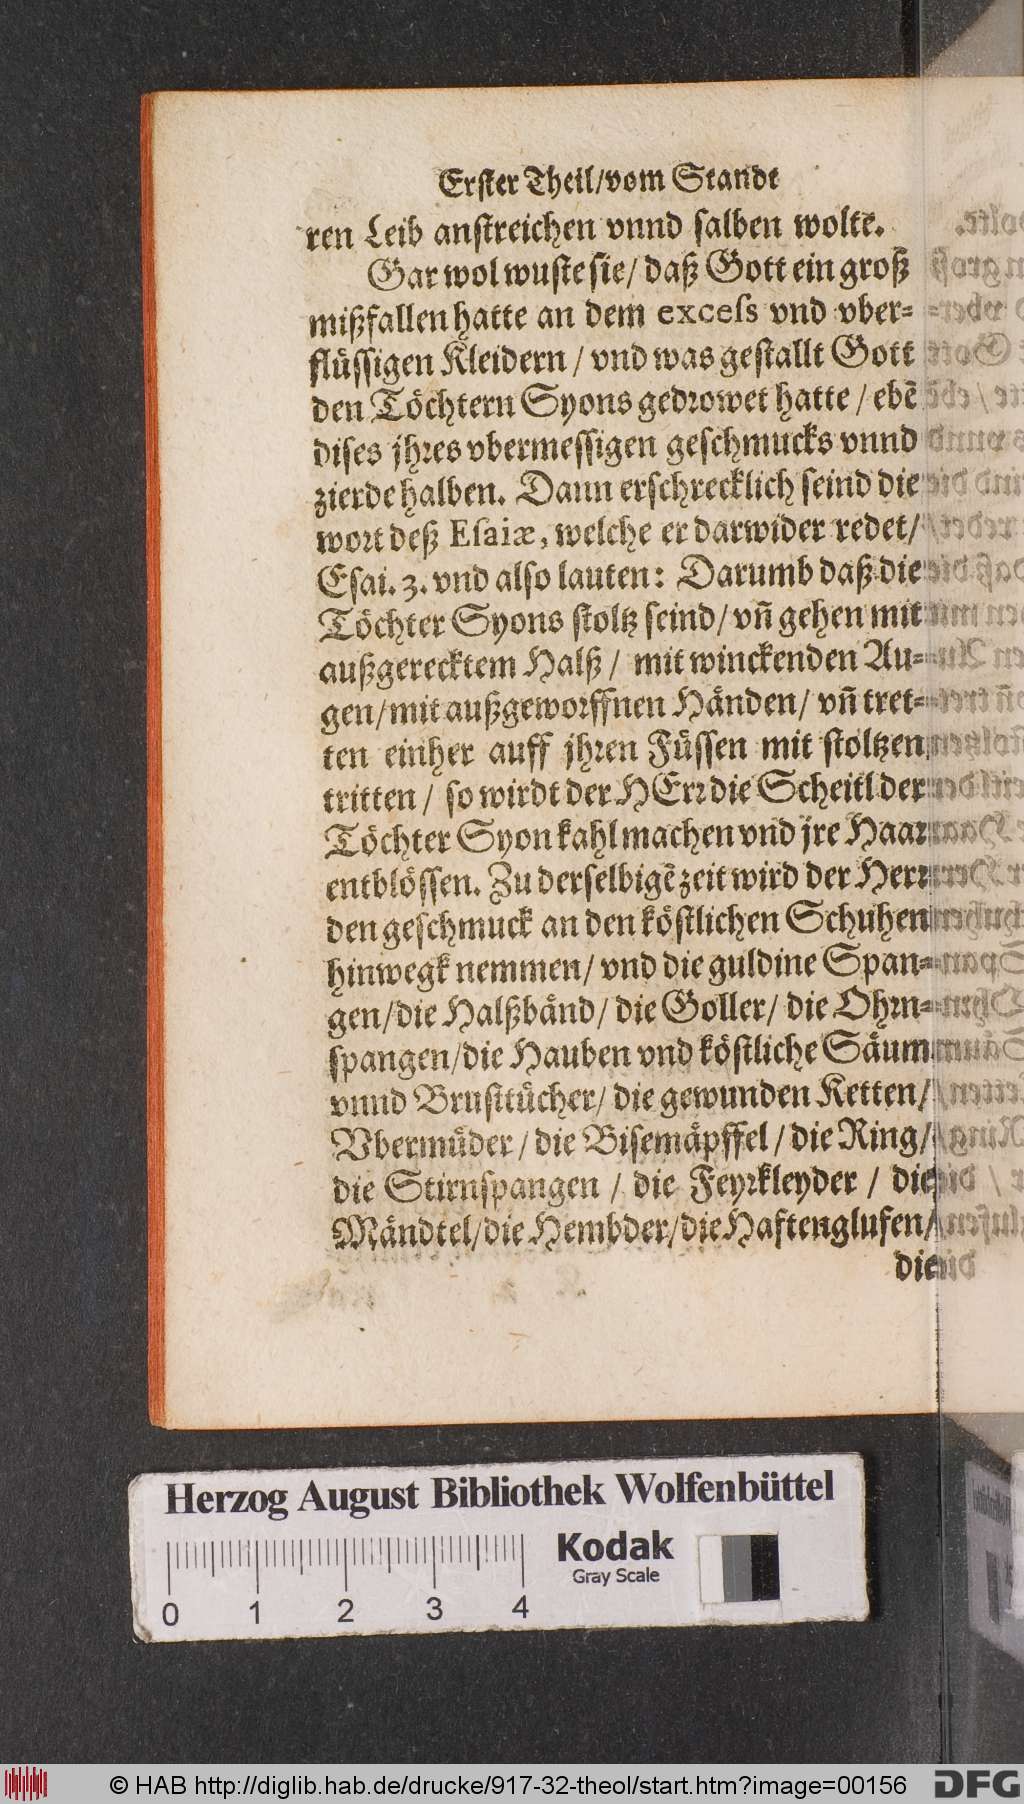 Erster Theil/vom Standt
ren Leib anstreichen vnnd salben wolte.
Gar wol wuste sie/ daß Gott ein groß
mißfallen hatte an dem excess vnd vber-
flüssigen Kleidern / vnd was gestallt Gott
den Töchtern Syons gedrowet hatte / ebē
dises jhres vbermessigen geschmucks vnnd
zierde halben. Dann erschrecklich seind die
wort deß Esaiæ, welche er darwider redet/
Esai. 3. vnd also lauten: Darumb daß die
Töchter Syons stoltz seind/ vñ gehen mit
außgerecktem Halß / mit winckenden Au-
gen/mit außgeworffnen Händen/ vñ tret-
ten einher auff jhren Füssen mit stoltzen
tritten / so wirdt der HErr die Scheitl der
Töchter Syon kahl machen vnd jre Haar
entblössen. Zu derselbigē zeit wird der Herr
den geschmuck an den köstlichen Schuhen
hinwegk nemmen/ vnd die guldine Span-
gen/die Halßbänd/ die Goller/ die Ohrn-
spangen/die Hauben vnd köstliche Säum
vnnd Brusttücher/ die gewunden Ketten/
Vbermüder/ die Bisemäpffel / die Ring/
die Stirnspangen / die Feyrkleyder / die
Mändtel/die Hembder/die Haftenglufen/
die
Herzog August Bibliothek Wolfenbüttel
Kodak
Gray Scale
0 1 2 3 4
© HAB http://diglib.hab.de/drucke/917-32-theol/start.htm?image=00156
DFG